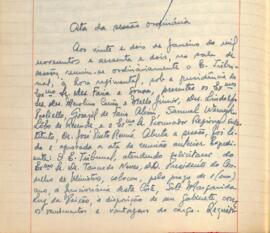 Ata da sessão ordinária
Aos vinte e dois de janeiro de mil
novecentos e sessenta e dois, na sala de
sessões reuniu-se ordinariamente o E. Tribu-
nal, à hora regimental, sob a presidência do
Exmo Sr. des Faria e Sousa, presentes os Exmos
Srs. des. Marcelino e Mello Junior, Drs.
Gonzaga de Faria Alvim, Samuel Werneck,
e o Exmo Sr. Procurador Regional subs-
tituto, Dr. José Pinto Renó. Aberta a sessão, foi li-
da e aprovada a ata da reunião anterior. Expedi-
ente: O E. Tribunal, atendendo solicitação do
Exmo Sr. Dr. Tancredo Neves, DD. Presidente do Con-
selho de Ministros, colocou, pelo prazo de 1 (um)
ano, a funcionária desta Côrte, Sta Margarida
Luz da Paixão, à disposição de seu Gabinete, com
os vencimentos e vantagens do cargo.